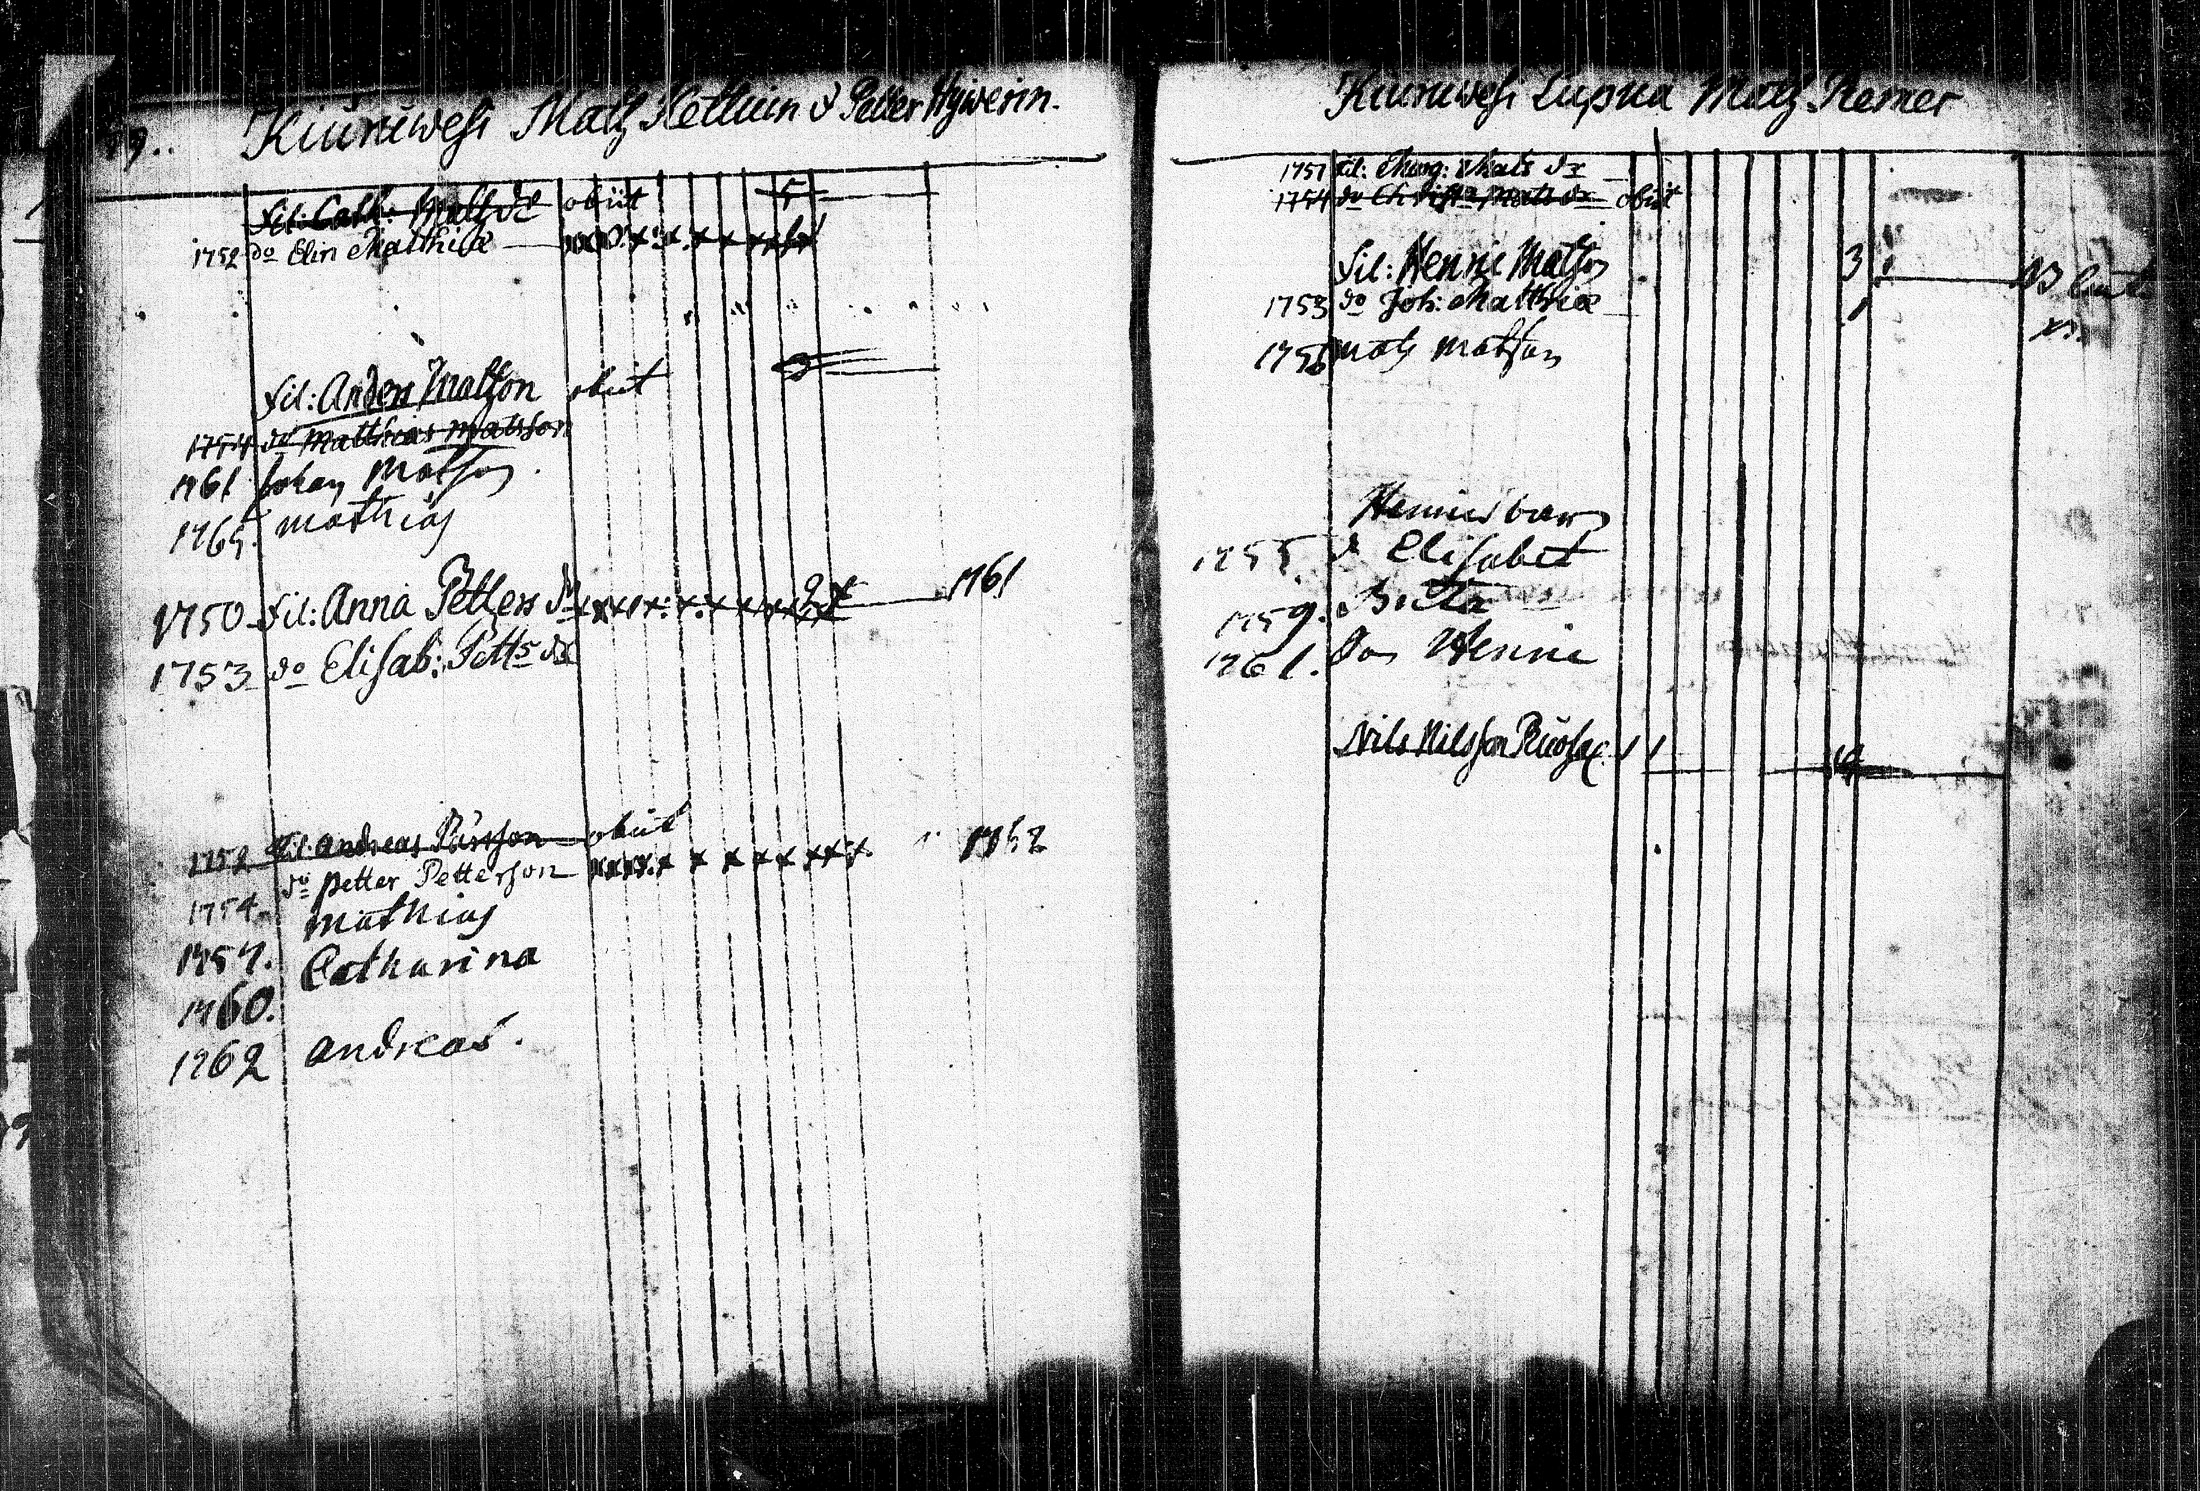 79.. Kiuruwesi Matz Hettuin & Petter Hywerin.
fil: Cath: Matz dr obiit 5
1752 do Elin Matthiæ
fil: Anders Matzon obiit
1754 do Matthias Matsson
1761 Johan Matson
1765. Mathias
1750 fil: Anna Petters dr 2 1761
1753 do Elisab: Petts dr
1752 fil: Andreas Pärsson obiit
do Petter Petterson 1762
1754. Mathias
1757. Catharina
1760.
1762 Andreas.
Kiuruwesi Lapua Matz Remer
1751 fil: Marg: Mats dr
1754 do Christ: Mats dr obiit
fil: Henric Matson 3
1753 do Joh: Matthiæ
1756 Matz Matson
Henrics barn
1755. d Elisabet
1759. Brita
1761. Son Henric
Nils Nilsson 1 1